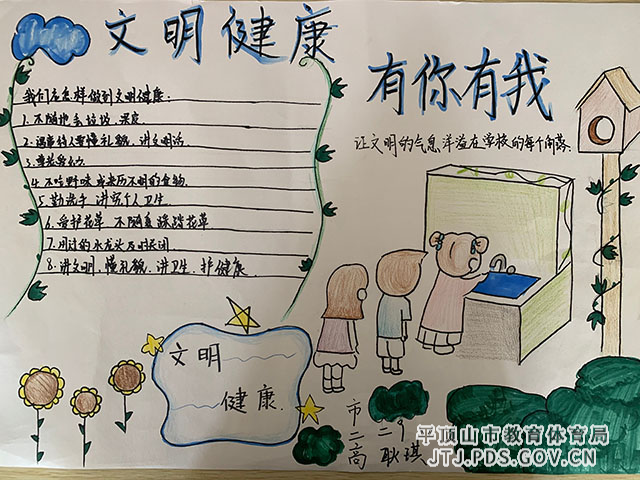 文明健康
有你有我
让文明的气息洋溢在学校的每个角落.
我们应怎样做到文明健康:
1.不随地丢垃圾、果皮.
2.遇事待人要懂礼貌、讲文明话.
3.尊老爱幼.
4.不吃野味或来历不明的食物.
5.勤洗手 讲究个人卫生.
6.爱护花草 不随意踩踏花草
7.用过的水龙头及时关闭
8.讲文明、懂礼貌、讲卫生、护健康.
文明
健康.
市二高
二9
耿琪
平顶山市教育体育局
JTJ.PDS.GOV.CN